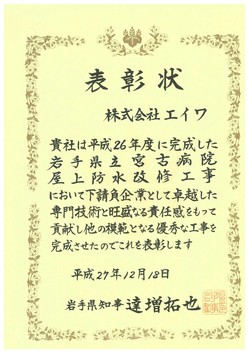 表彰状
株式会社エイワ
貴社は平成26年度に完成した
岩手県立宮古病院
屋上防水改修工事
において下請負企業として卓越した
専門技術と旺盛なる責任感をもって
貢献し他の模範となる優秀な工事を
完成させたのでこれを表彰します
平成27年12月18日
岩手県知事 達増拓也